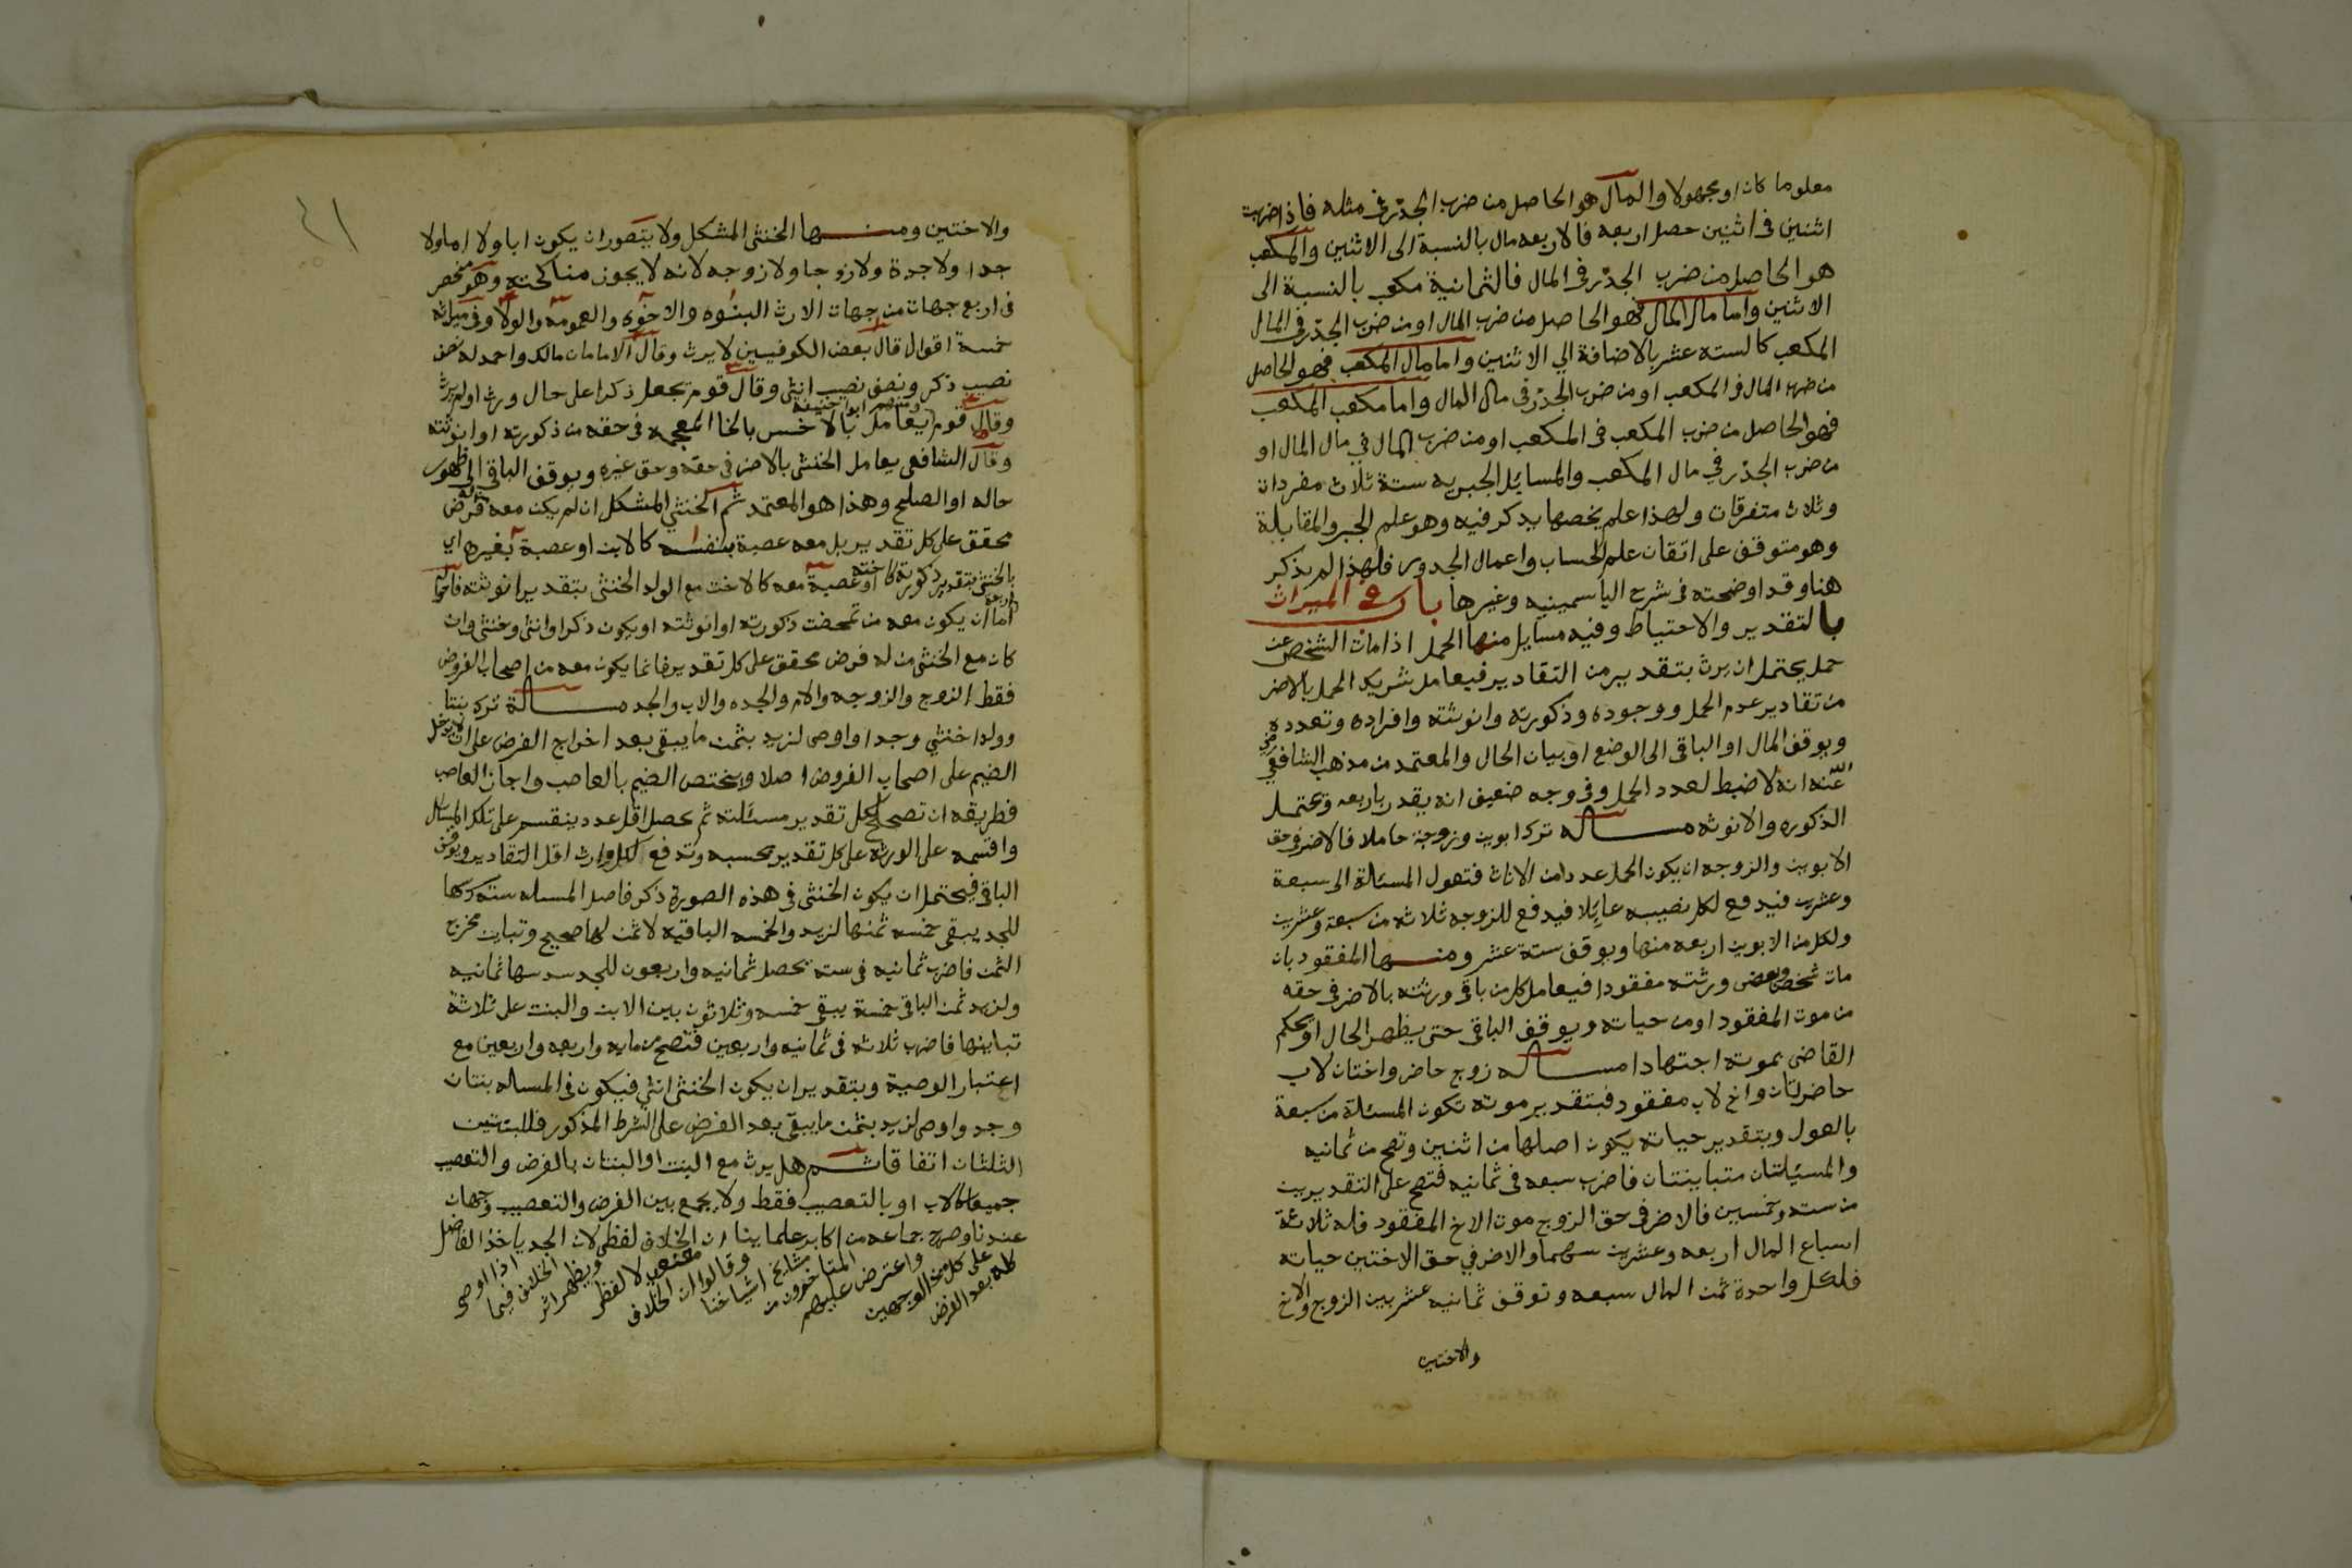 معلوما كان او مجهولا والمال هو الحاصل من ضرب الجذر فى مثله فاذا ضربت
اثنين فى اثنين حصل اربعه فالاربعه مال بالنسبة الى الاثنين والمكعب
هو الحاصل من ضرب الجذر فى المال فالثمانية مكعب بالنسبة الى
الاثنين واما مال المال فهو الحاصل من ضرب المال او من ضرب الجذر فى المال
المكعب كالسته عشر بالاضافة الي الاثنين واما مال المكعب فهو الحاصل
من ضرب المال فى المكعب او من ضرب الجذر فى مال المال واما مكعب المكعب
فهو الحاصل من ضرب المكعب فى المكعب او من ضرب المال في مال المال او
من ضرب الجذر في مال المكعب والمسائل الجبريه ستة ثلاث مفردات
وثلاث متفرقات ولهذا علم يخصها يذكر فيه وهو علم الجبر والمقابلة
وهو متوقف على اتقان علم الحساب واعمال الجذور فلهذا لم يذكر
هنا وقد اوضحته فى شرح الياسمينيه وغيرها باب الميراث
بالتقدير والاحتياط وفيه مسايل منها الحمل اذا مات الشخص عن
حمل يحتمل ان يرث بتقدير من التقادير فيعامل شريك الحمل بالاضر
من تقادير عدم الحمل ووجوده وذكورته وانوثته وافراده وتعدده
ويوقف المال او الباقى الى الوضع او بيان الحال والمعتمد من مذهب الشافعي رضي
الله عنه انه لا ضبط لعدد الحمل وفى وجه ضعيف انه يقدر باربعه وتحتمل
الذكوره والانوثه مسـاله ترك ابوين وزوجة حاملا فالاضر فى حق
الابوين والزوجه ان يكون الحمل عددا من الاناث فتعول المسئلة الى سبعة
وعشرين فيدفع لكل نصيبه عائلا فيدفع للزوجه ثلاثه من سبعة وعشرين
ولكل من الابوين اربعه منها ويوقف ستة عشر ومنـها المفقود بان
مات شخص وبعض ورثته مفقودا فيعامل كل من باقى ورثته بالاضر فى حقه
من موت المفقود او من حياته ويوقف الباقى حتى يظهر الحال او يحكم
القاضى بموته اجتهادا مسـاله زوج حاضر واختان لاب
حاضرتان واخ لاب مفقود فبتقدير موته تكون المسئلة من سبعة
بالعول وبتقدير حياته يكون اصلها من اثنين وتصح من ثمانيه
والمسيلتان متباينتان فاضرب سبعه فى ثمانيه فتصح على التقديرين
من سته وخمسين فالاضر فى حق الزوج موت الاخ المفقود فله ثلاثة
اسباع المال اربعه وعشرين سهما والاضر في حق الاختين حياته
فلكل واحدة ثمن المال سبعه وتوقف ثمانيه عشر بين الزوج والاخ
والاختين
٤١
والاختين ومنـها الخنثى المشكل ولا يتصور ان يكون ابا ولا اما ولا
جدا ولا جدة ولا زوجا ولا زوجه لانه لا يجوز مناكحته وهو منحصر
فى اربع جهات من جهات الارث البنوه والاخوه والعمومه والولا وفى ميراثه
خمسة اقوال قال بعض الكوفيين لا يرث وقال الامامان مالك واحمد له نصف
نصيب ذكر ونصف نصيب انثى وقال قوم يجعل ذكرا على حال ورث او لم يرث
ومنهم ابو حنيفه
وقال قوم يعامل بالاخس بالخا المعجمه فى حقه من ذكورته او انوثته
وقال الشافعى يعامل الخنثى بالاضر فى حقه وحق غيره ويوقف الباقى الى ظهور
حاله او الصلح وهذا هو المعتمد ثم الخنثي المشكل ان لم يكن معه فرض
محقق على كل تقدير بل معه عصبة بنفسه كالابن او عصبة بغيره اي
بالخنثى بتقدير ذكورته كاخته او عصبة معه كالاخت مع الولد الخنثى بتقدير انوثته
اما ان يكون معه من تمحضت ذكورته او انوثته او يكون ذكرا وانثى وخنثى وان
كان مع الخنثى من له فرض محقق على كل تقدير فانما يكون معه من اصحاب الفروض
فقط الزوج والزوجه والام والجده والاب والجد مسـالة ترك بنتا
وولدا خنثي وجدا واوصى لزيد بثمن ما يبقى بعد اخراج الفرض على ان لا يدخل
الضيم على اصحاب الفروض اصلا ويختص الضيم بالعاصب واجاز العاصب
فطريقه ان تصحح لكل تقدير مسئلته ثم تحصل اقل عدد ينقسم على تلك المسائل
واقسمه على الورثه على كل تقدير بحسبه وتدفع لكل وارث اقل التقادير ويوقف
الباقى فيحتمل ان يكون الخنثى فى هذه الصورة ذكر فاصل المسله سته
للجد يبقى خمسه ثمنها لزيد والخمسه الباقيه لا ثمن لها صحيح وتباين مخرج
الثمن فاضرب ثمانيه فى سته يحصل ثمانيه واربعون للجد سدسها ثمانيه
ولزيد ثمن الباقى خمسة يبقى خمسه وثلاثون بين الابن والبنت على ثلاثة
تباينها فاضرب ثلاثه فى ثمانيه واربعين فتصح من مايه واربعه واربعين مع
اعتبار الوصية وبتقدير ان يكون الخنثى انثى فيكون فى المساله بنتان
وجد واوصى لزيد بثمن ما يبقى بعد الفرض على الشرط المذكور فللبنتين
الثلثان اتفاقا ثـم هل يرث مع البنت او البنتان بالفرض والتعصيب
جميعا كالاب او بالتعصيب فقط ولا يجمع بين الفرض والتعصيب وجهان
عندنا وصرح جماعه من اكابر علماينا ان الخلاف لفظى لان الجد ياخذ الفاضل
كله بعد الفرض
على كل من الوجهين
واعترض عليهم
المتاخرون من
مشايخ اشياخنا
وقالوا ان الخلاف
معنوي لا لفظي
ويظهر اثر
الخلاف فيما
اذا اوصى